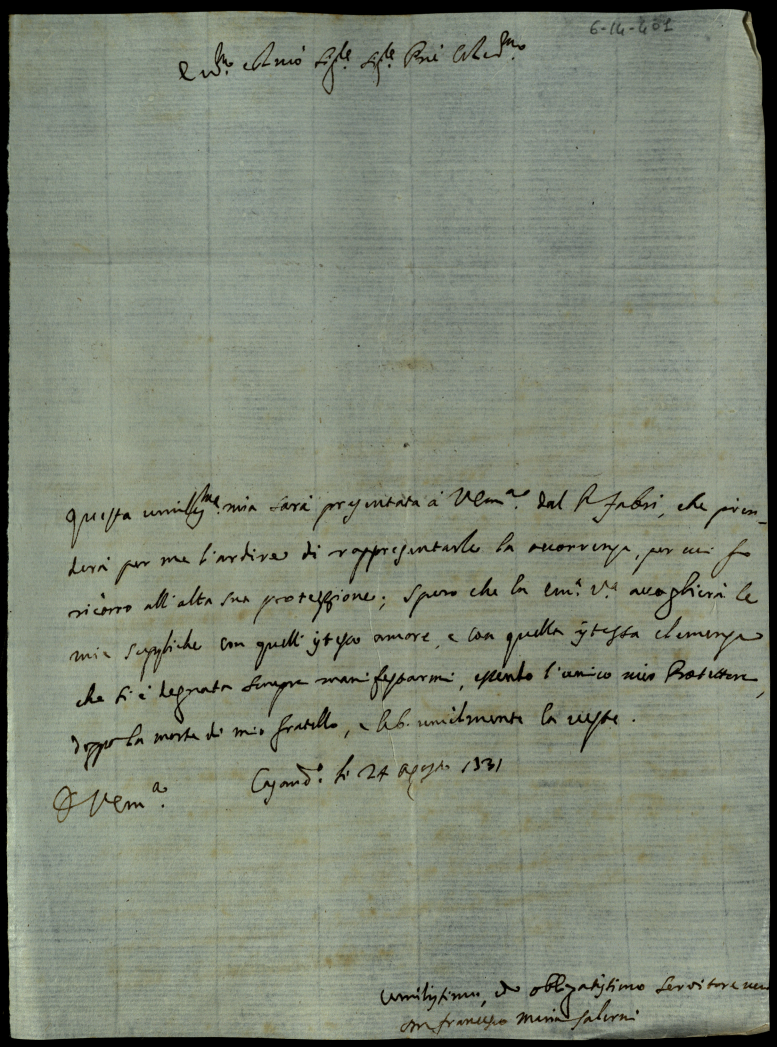 6-14-401
E m͞o e Rmo Sig.re Sig.re Pne Col.mo
Questa umiliss.ma mia sarà presentata à V Em.a dal P. Fabri, che pren-
derà per me l'ardire di rappresentarle la occorrenza, per cui fo
ricorso all'alta sua protezzione; spero che la Em.a V.a accoglierà le
mie suppliche con quell'istesso amore, e con quella istessa clemenza
che si è degnata sempre manifestarmi, essendo l'unico mio Protettore,
doppo la morte di mio fratello, e le b. umilmente la veste.
D V Em.a
li 24 Agosto 1731
Umilissimo, ed obbligatissimo servitore vero
Francesco Maria Salerni